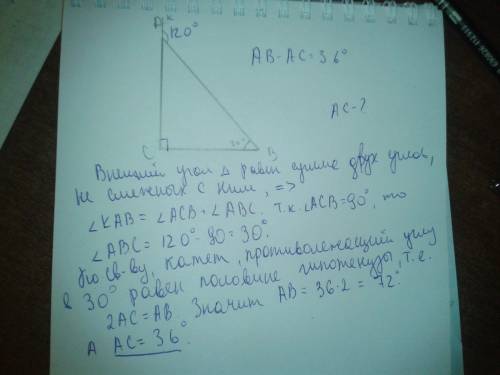 A K
120°
AB-AC=36°
AC-?
C
30°
B
Внешний угол Δ равен сумме двух углов,
не смежных с ним, =>
∠KAB = ∠ACB + ∠ABC. Т.к. ∠ACB=90°, то
∠ABC = 120°-90=30°.
По св-ву, катет, противолежащий углу
в 30° равен половине гипотенузы, т.е.
2AC=AB. Значит AB = 36·2 = 72°.
А AC=36°.